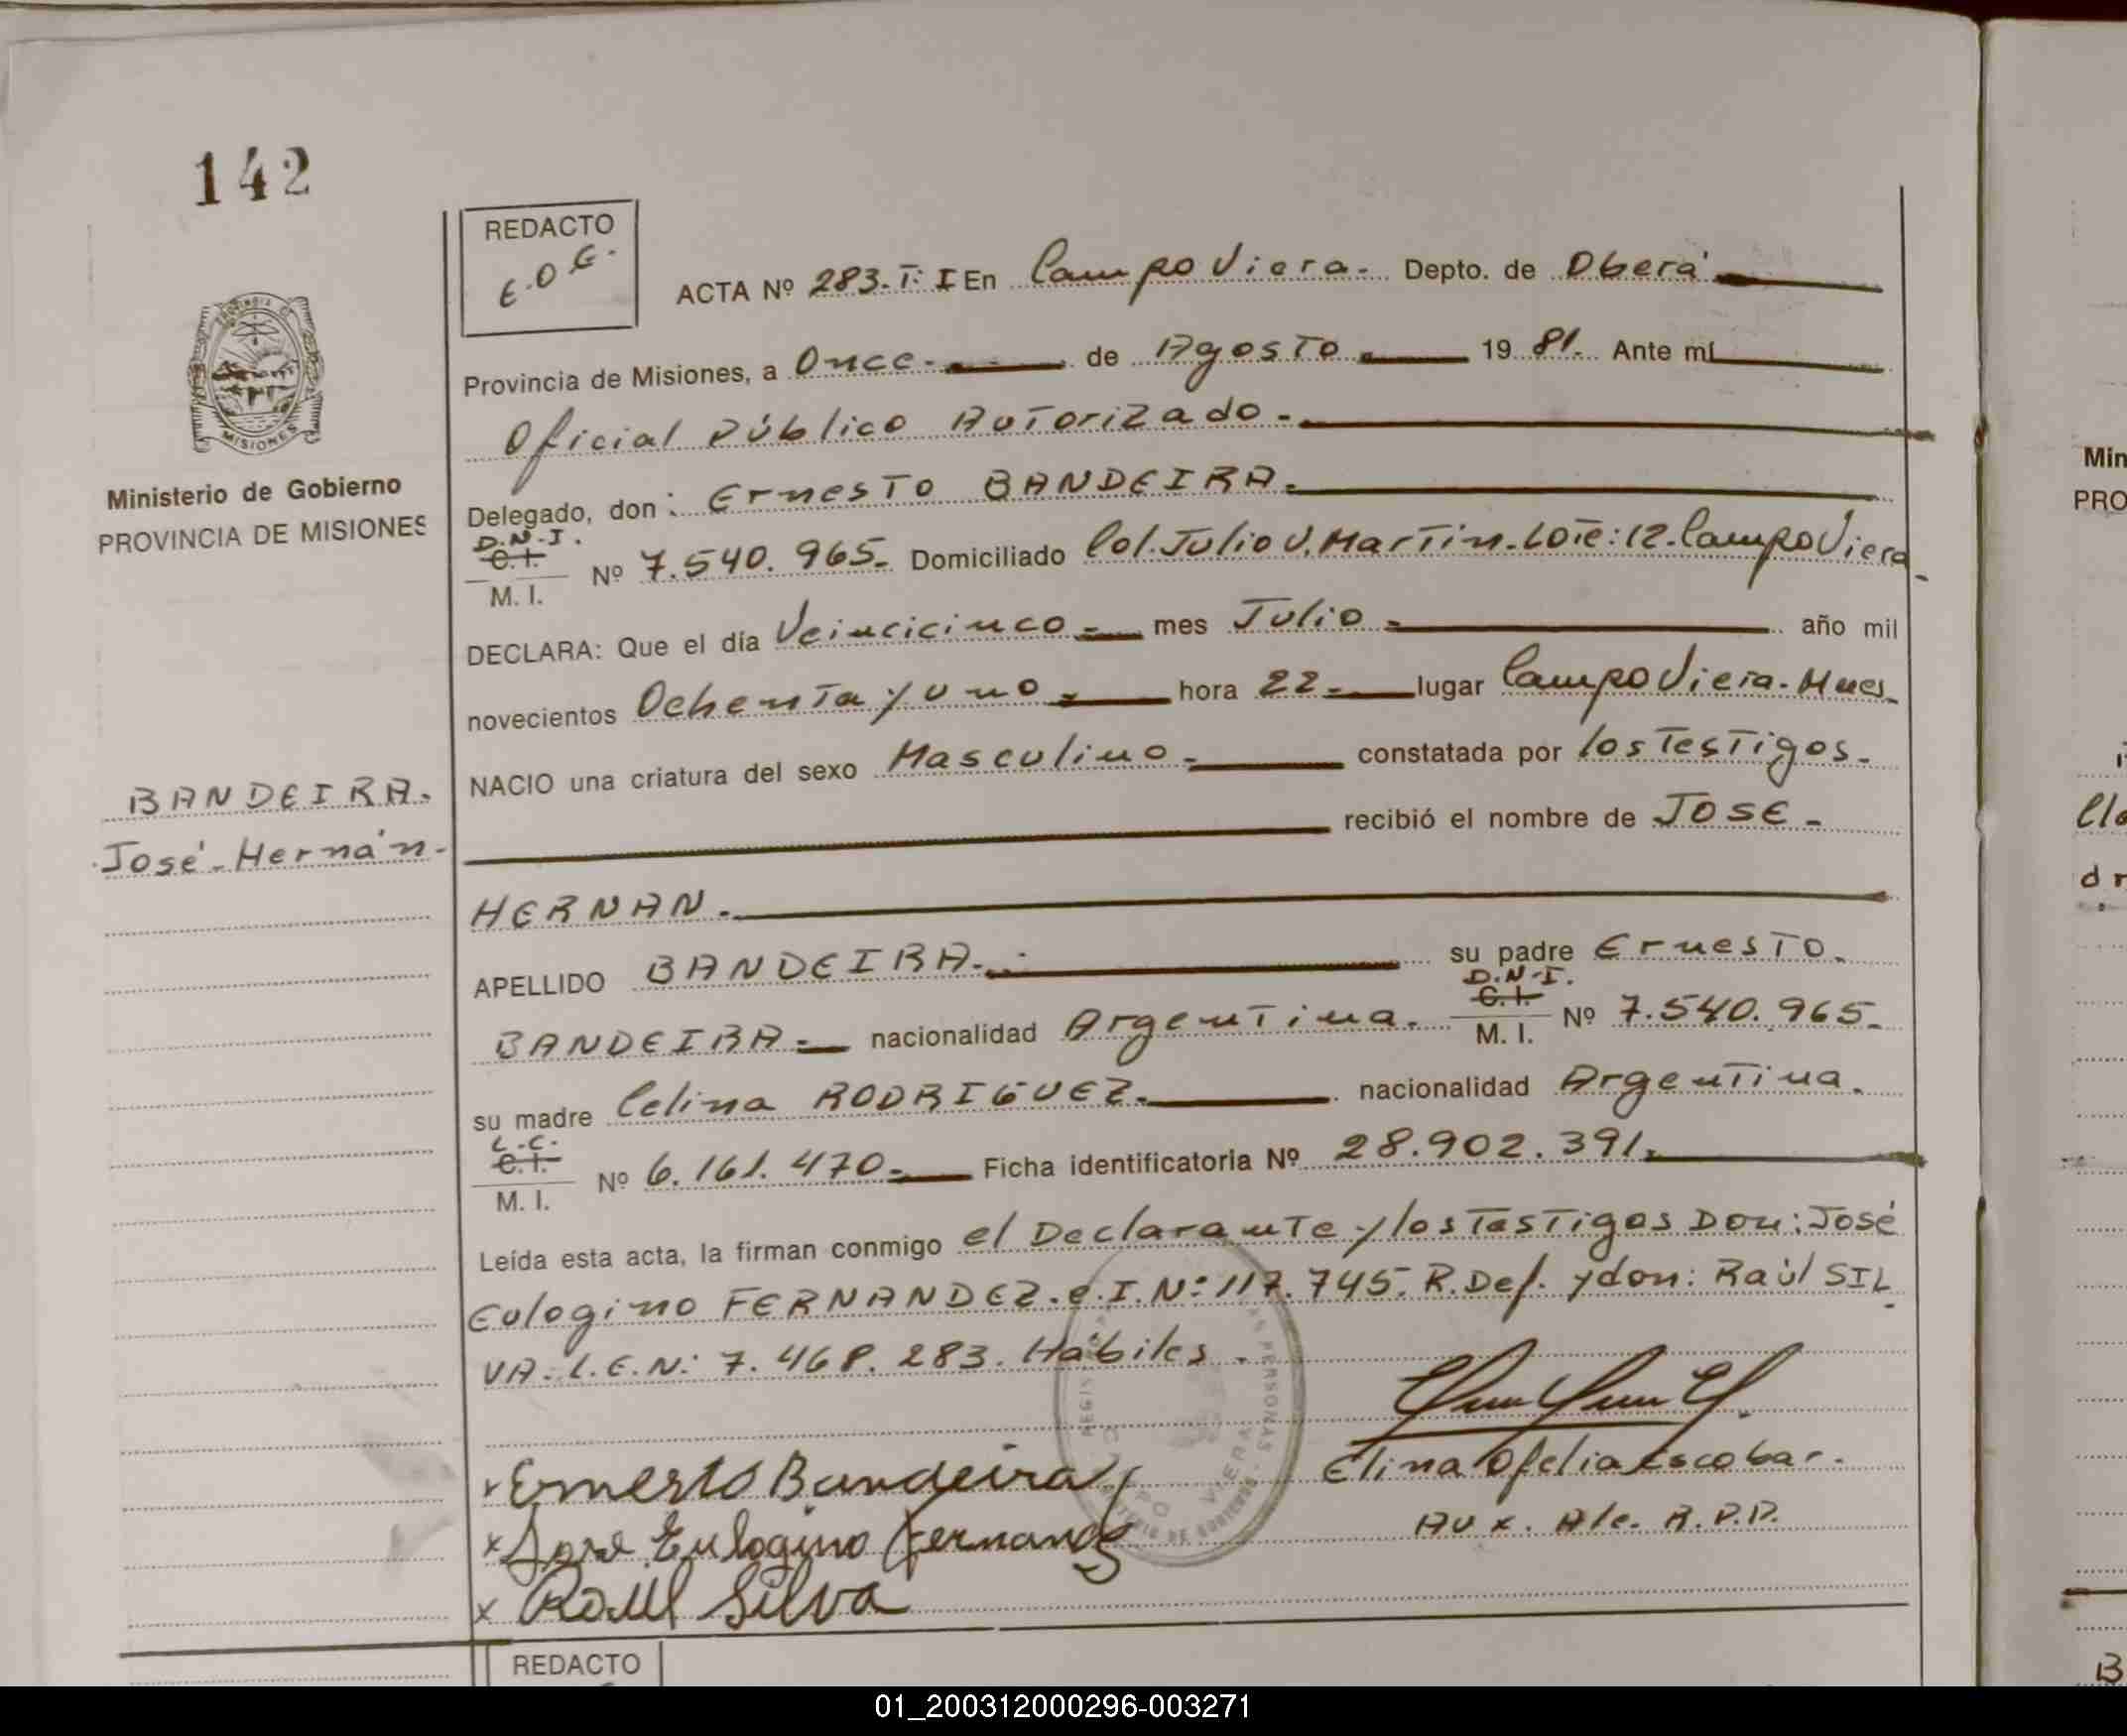 142
REDACTO
E.O.G.
ACTA Nº 283. T: I En Campo Viera. Depto. de Oberá
Provincia de Misiones, a Once. de Agosto. 19 81. Ante mí
Oficial Público Autorizado.
Ministerio de Gobierno
PROVINCIA DE MISIONES
Delegado, don: Ernesto BANDEIRA.
D.N.I.
C.I.
M. I. Nº 7.540.965. Domiciliado Col. Julio U. Martin. Lote: 12. Campo Viera
DECLARA: Que el día Veincicinco. mes Julio. año mil
novecientos Ochenta y uno. hora 22. lugar Campo Viera. Mnes.
NACIO una criatura del sexo Masculino. constatada por los Testigos.
BANDEIRA.
José Hernán.
recibió el nombre de JOSE.
HERNAN.
APELLIDO BANDEIRA. su padre Ernesto.
D.N.I.
BANDEIRA. nacionalidad Argentina. C.I. M. I. Nº 7.540.965.
su madre Celina RODRIGUEZ. nacionalidad Argentina.
L.C.
C.I.
M. I. Nº 6.161.470. Ficha identificatoria Nº 28.902.391.
Leída esta acta, la firman conmigo el Declarante y los Testigos Don: José
Eulogino FERNANDEZ. C.I. Nº 117.745. R. Def. y don: Raúl SIL
VA. L.E. N: 7.468.283. Hábiles.
Ernesto Bandeira
Elina Ofelia Escobar.
x José Eulogino Fernandez
Aux. A/c. R.P.P.
x Raul Silva
REDACTO
MISIONES
Min
PRO
01_200312000296-003271